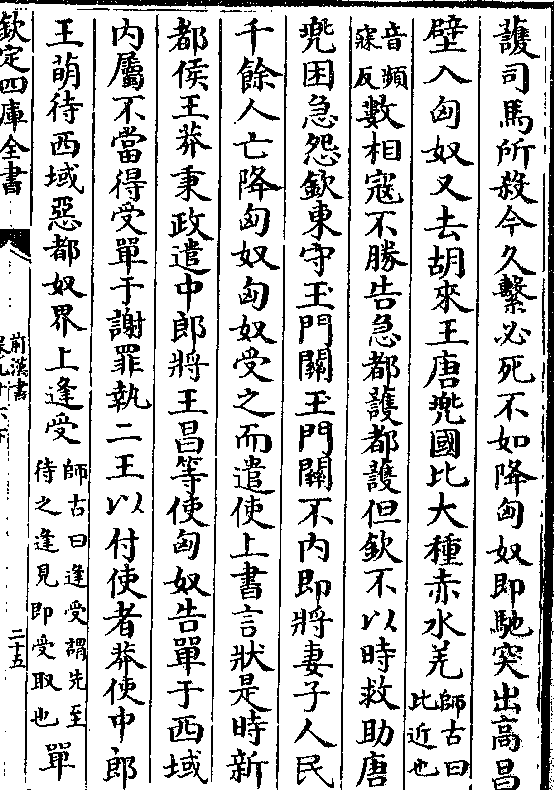 護司馬所殺今久繫必死不如降匈奴即馳突出髙昌
壁入匈奴又去胡來王唐兠國比大種赤水羌師古曰比近也
音頻寐反數相冦不勝告急都護都護但欽不以時救助唐
兠困急怨欽東守玉門關玉門關不内即將妻子人民
千餘人亡降匈奴匈奴受之而遣使上書言狀是時新
都侯王莽秉政遣中郎將王昌等使匈奴告單于西域
内屬不當得受單于謝罪執二王以付使者莽使中郎
王萌待西域惡都奴界上逢受師古曰逢受謂先至待之逢見即受取也單
欽定四庫全書
前漢書
卷九十六下
二十五